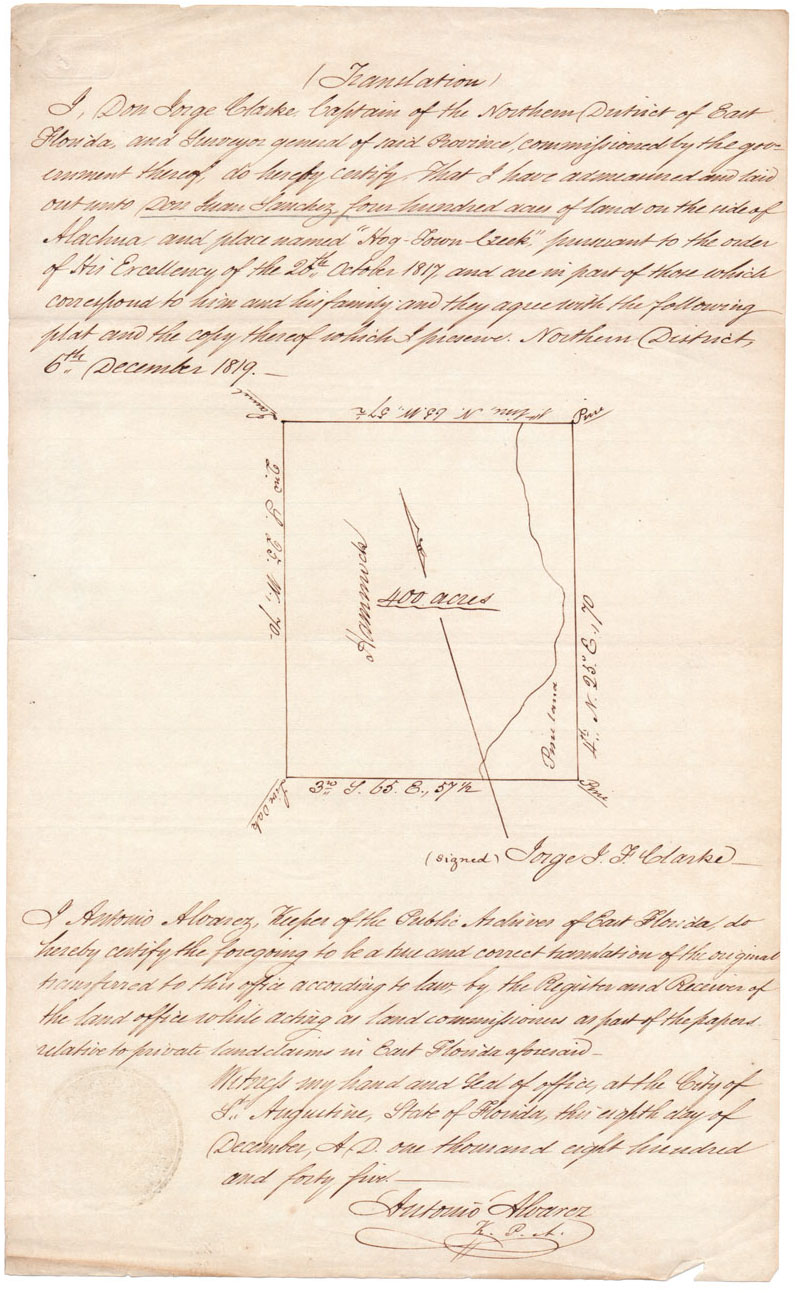 (Translation)
I, Don Jorge Clarke, Captain of the Northern District of East
Florida, and Surveyor general of said Province, commissioned by the gov-
ernment thereof, do hereby certify, That I have admeasured and laid
out unto Don Juan Sanchez, four hundred acres of land on the side of
Alachua, and place named "Hog-Town-Creek" pursuant to the order
of His Excellency of the 20th October 1817, and are in part of those which
correspond to him and his family: and they agree with the following
plat and the copy thereof which I preserve. Northern District,
6th December 1819.—
Laurel
1st Line N. 65. W., 57½
Pine
2nd S. 25. W., 70
Hammock
400 acres
Pine land
4th N. 25. E., 70
Live Oak
3rd S. 65. E., 57 1/2
Pine
(signed) Jorge J. F. Clarke—
I Antonio Alvarez, Keeper of the Public Archives of East Florida, do
hereby certify the foregoing to be a true and correct translation of the original
transferred to this office according to law, by the Register and Receiver of
the land office while acting as land commissioners as part of the papers
relative to private land claims in East Florida aforesaid—
Witness my hand and Seal of office, at the City of
St. Augustine, State of Florida, this eighth day of
December, A.D. one thousand eight hundred
and forty five.—
Antonio Alvarez
K. P. A.